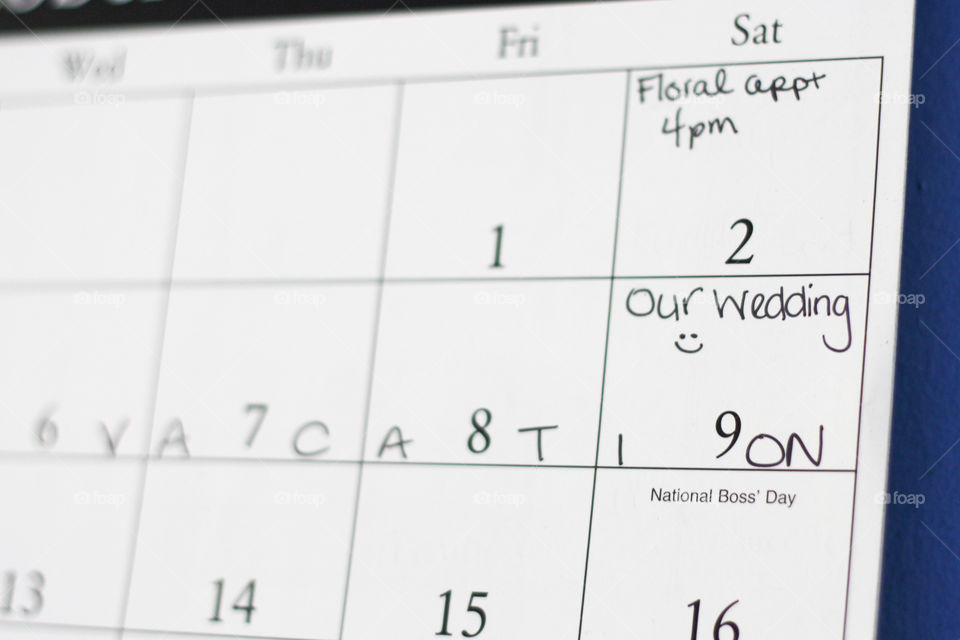 Wed Thu Fri Sat
Floral appt
4pm
1 2
Our Wedding
6 7 8 9
V A C A T I ON
National Boss' Day
13 14 15 16
foap